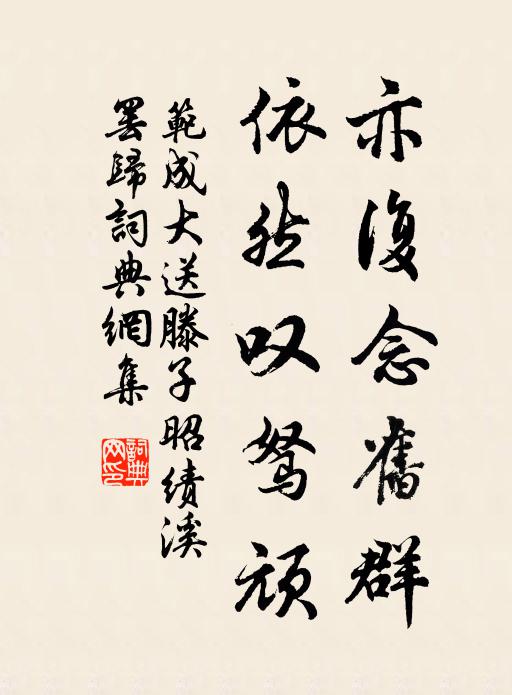 亦復念舊群
依然叹駑頑
範成大送滕子昭績溪
罢歸詞典網集
詞典网印